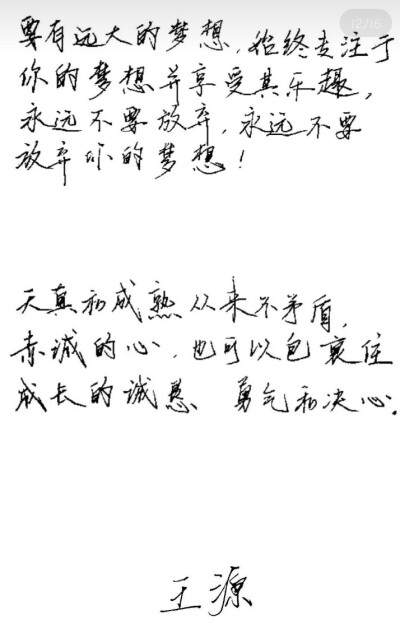 12/16
要有远大的梦想，始终专注于
你的梦想并享受其乐趣，
永远不要放弃，永远不要
放弃你的梦想！
天真和成熟从来不矛盾，
赤诚的心，也可以包裹住
成长的诚恳 勇气和决心.
王源